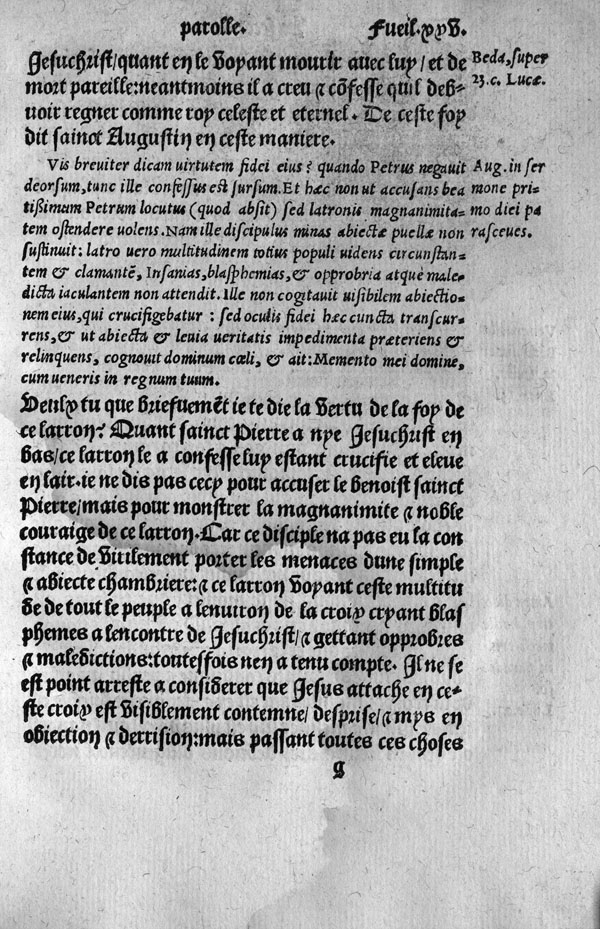 parolle. Fueil.xxV.
Jesuchrist/quant en le voyant mourir avec luy/et de
mort pareille:neantmoins il a creu ⁊ cõfesse quil deb-
voir regner comme roy celeste et eternel. De ceste foy
dit sainct Augustin en ceste maniere.
Beda, super
23.c. Lucæ.
Vis breviter dicam virtutem fidei eius? quando Petrus negavit
deorsum, tunc ille confessus est sursum. Et hæc non ut accusans bea
tißimum Petrum locutus (quod absit) sed latronis magnanimita-
tem ostendere volens. Nam ille discipulus minas abiectæ puellæ non
sustinuit: latro vero multitudinem totius populi videns circunstan-
tem & clamantẽ, Insanias, blasphemias, & opprobria atque male-
dicta iaculantem non attendit. Ille non cogitavit visibilem abiectio-
nem eius, qui crucifigebatur : sed oculis fidei hæc cuncta transcur-
rens, & ut abiecta & levia veritatis impedimenta præteriens &
relinquens, cognovit dominum cœli, & ait: Memento mei domine,
cum veneris in regnum tuum.
Aug. in ser
mone pri-
mo diei pa
rasceues.
Veulx tu que briefuemẽt ie te die la vertu de la foy de
ce larron? Quant sainct Pierre a nye Jesuchrist en
bas/ce larron le a confesse luy estant crucifie et eleve
en lair. ie ne dis pas cecy pour accuser le benoist sainct
Pierre/mais pour monstrer la magnanimite ⁊ noble
couraige de ce larron. Car ce disciple na pas eu la con
stance de virilement porter les menaces dune simple
⁊ abiecte chambriere:⁊ ce larron voyant ceste multitu
de de tout le peuple a lenuiron de la croix cryant blas
phemes a lencontre de Jesuchrist/⁊ gettant opprobres
⁊ maledictions:toutesfois nen a tenu compte. Il ne se
est point arreste a considerer que Jesus attache en ce-
ste croix est visiblement contemne/desprise/⁊ mys en
obiection ⁊ derrision:mais passant toutes ces choses
g